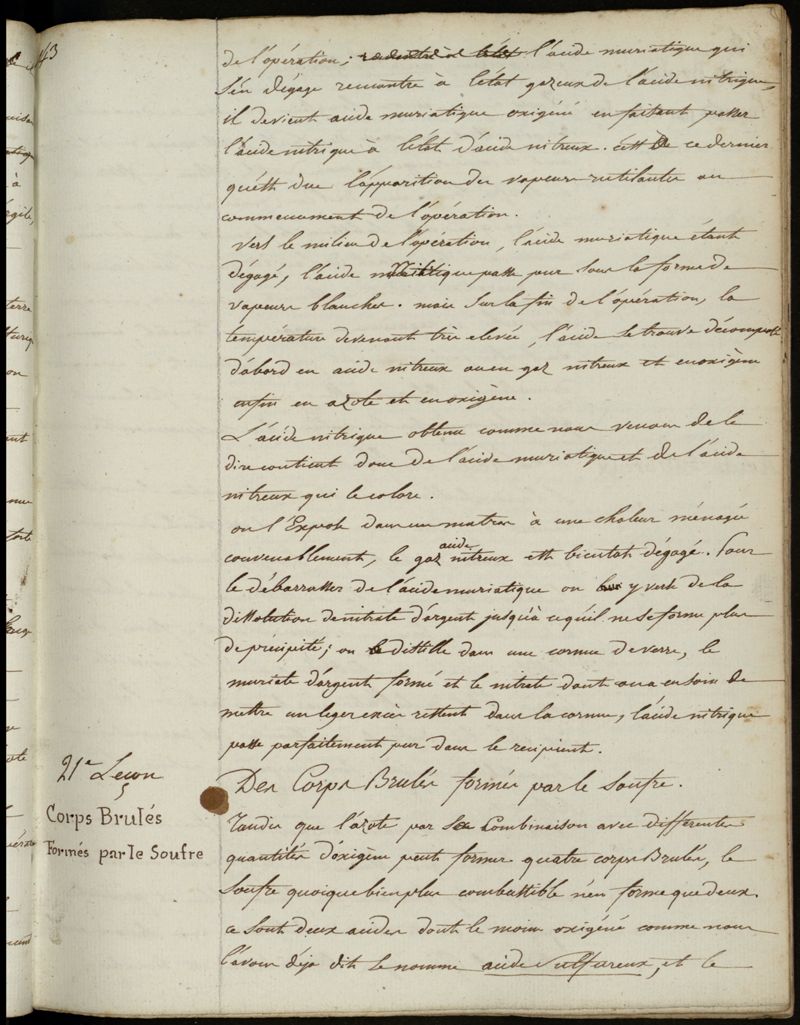 43
de l'opération; l'acide muriatique qui
s'en dégage rencontre à l'état gazeux de l'acide nitrique,
il devient acide muriatique oxigéné en faisant passer
l'acide nitrique à l'état d'acide nitreux. c'est de ce dernier
qu'est due l'apparition des vapeurs rutilantes au
commencement de l'opération.
Vers le milieu de l'opération, l'acide muriatique étant
dégagé, l'acide nitrique passe pur sous la forme de
vapeurs blanches. mais sur la fin de l'opération, la
température devenant très elevée, l'acide se trouve décomposé
d'abord en acide nitreux ou en gaz nitreux et en oxigène
enfin en azote et en oxigène.
L'acide nitrique obtenu comme nous venons de le
dire contient donc de l'acide muriatique et de l'acide
nitreux qui le colore.
on l'Expose dans un matras à une chaleur ménagée
convenablement, le gaz acide nitreux est bientot dégagé. Pour
le débarrasser de l'acide muriatique on y verse de la
dissolution de nitrate d'argent jusqu'à ce qu'il ne se forme plus
de précipité; on distille dans une cornue de verre, le
muriate d'argent formé et le nitrate dont on a eu soin de
mettre un leger excès restent dans la cornue, l'acide nitrique
passe parfaitement pur dans le recipient.
21e Leçon
Corps Brulés
Formés par le Soufre
Des Corps Brulés formés par le Soufre.
Tandis que l'azote par sa Combinaison avec differentes
quantités d'oxigène peut former quatre corps Brulés, le
Soufre quoique bien plus combustible n'en forme que deux.
ce sont deux acides dont le moins oxigéné comme nous
l'avons déja dit se nomme acide Sulfureux, et le